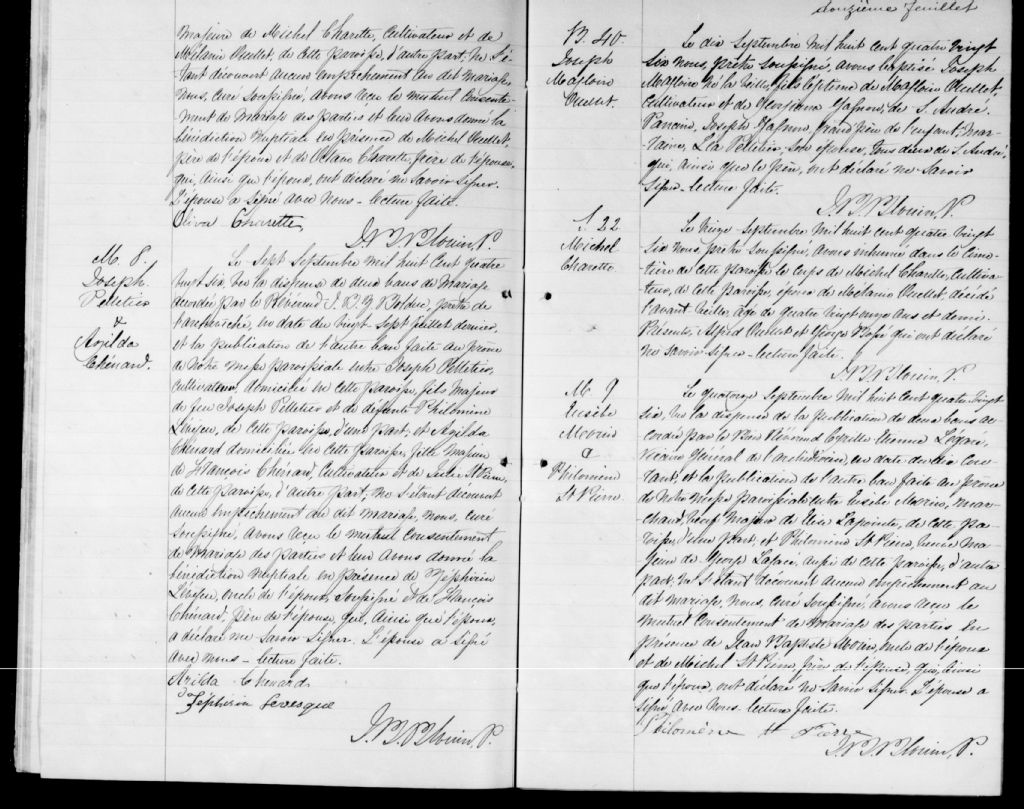 majeure de Michel Charette, Cultivateur et de
Mélanie Ouellet, de cette paroisse, d'autre part; ne s'é-
tant découvert aucun empêchement au dit mariage,
nous, curé soussigné, avons reçu le mutuel consente-
ment de mariage des parties et leur avons donné la
bénédiction nuptiale en présence de Michel Ouellet,
père de l'époux et de Octave Charette, frère de l'épouse,
qui, ainsi que l'époux, ont déclaré ne savoir signer.
L'épouse a signé avec nous - lecture faite.
Olive Charette
M. 8.
Joseph
Pelletier
&
Azilda
Chénard.
Le sept septembre mil huit cent quatre
vingt six, vu la dispense de deux bans de mariage
accordée par le Révérend prêtre de
l'archevêché, en date du vingt sept juillet dernier,
et la publication de l'autre ban faite au prône
de notre messe paroissiale entre Joseph Pelletier,
cultivateur domicilié en cette paroisse, fils majeur
de feu Joseph Pelletier et de défunte Philomène
Lévesque, de cette paroisse, d'une part; et Azilda
Chénard domiciliée en cette paroisse, fille majeure
de François Chénard, cultivateur et de St Pierre,
de cette paroisse, d'autre part; ne s'étant découvert
aucun empêchement au dit mariage, nous, curé
soussigné, avons reçu le mutuel consentement
de mariage des parties et leur avons donné la
bénédiction nuptiale en présence de Zéphirin
Lévesque, oncle de l'époux, soussigné et de François
Chénard, père de l'épouse, qui, ainsi que l'époux,
a déclaré ne savoir signer. L'épouse a signé
avec nous - lecture faite.
Azilda Chénard
Zéphirin Levesque
douzième feuillet
B. 40.
Joseph
Ouellet.
Le dix septembre mil huit cent quatre vingt
six nous, prêtre soussigné, avons baptisé Joseph
né la veille, fils légitime de Ouellet,
cultivateur et de Gagnon, de S. André.
Parrain, Joseph Gagnon, grand père de l'enfant; mar-
raine, Pelletier, son épouse, tous deux de S. André,
qui, ainsi que le père, ont déclaré ne savoir
signer - lecture faite.
S. 22
Michel
Charette
Le septembre mil huit cent quatre vingt
six nous, prêtre soussigné, avons inhumé dans le cime-
tière de cette paroisse le corps de Michel Charette, cultiva-
teur, de cette paroisse, époux de Mélanie Ouellet, décédé
l'avant veille, âgé de quatre vingt onze ans et demi.
Présents, Alfred Ouellet et George qui ont déclaré
ne savoir signer - lecture faite.
M. 9
Eusèbe
Morin
&
Philomène
St Pierre
Le quatorze septembre mil huit cent quatre vingt
six, vu la dispense de la publication de deux bans ac-
cordée par le Très Révérend Cyrille Etienne Légaré,
vicaire général de l'archidiocèse, en date du dix cou-
rant, et la publication de l'autre ban faite au prône
de notre messe paroissiale entre Eusèbe Morin, mar-
chand, veuf majeur de Lapointe, de cette pa-
roisse, d'une part; et Philomène St Pierre, veuve ma-
jeure de George aussi de cette paroisse, d'autre
part; ne s'étant découvert aucun empêchement au
dit mariage, nous, curé soussigné, avons reçu le
mutuel consentement de mariage des parties en
présence de Jean Baptiste Morin, oncle de l'époux
et de Michel St Pierre, frère de l'épouse, qui, ainsi
que l'époux, ont déclaré ne savoir signer. L'épouse a
signé avec nous - lecture faite.
Philomène St Pierre